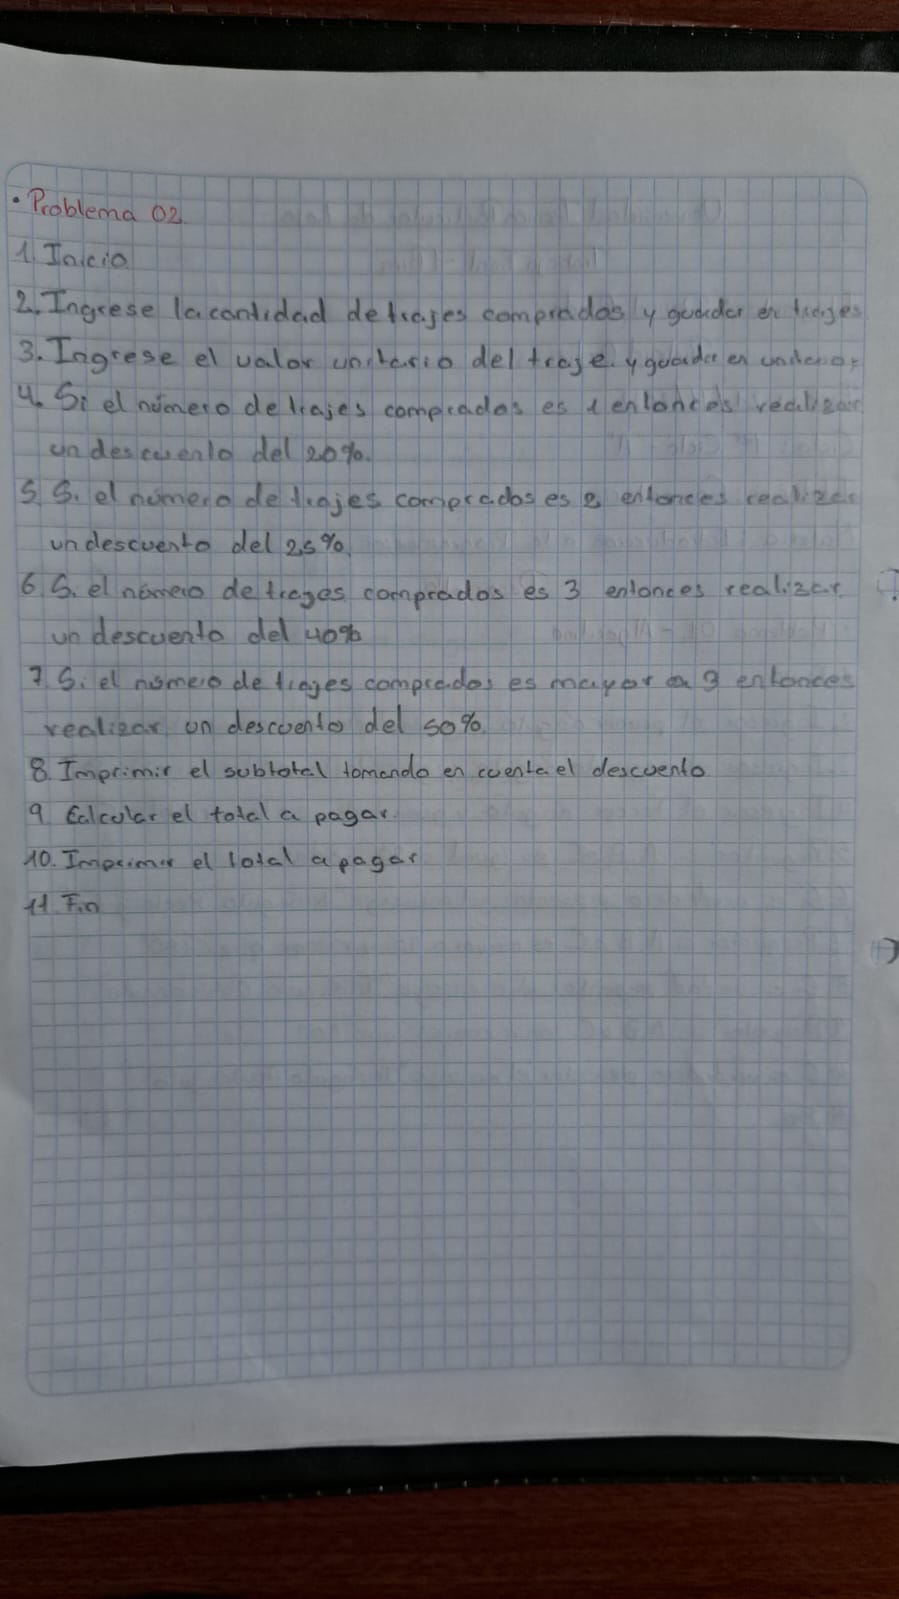 • Problema 02.
1. Inicio
2. Ingrese la cantidad de trajes comprados y guardar en trajes
3. Ingrese el valor unitario del traje y guardar en unitario
4. Si el número de trajes comprados es 1 entonces realizar
un descuento del 20%.
5. Si el número de trajes comprados es 2 entonces realizar
un descuento del 25%.
6. Si el número de trajes comprados es 3 entonces realizar
un descuento del 40%
7. Si el número de trajes comprados es mayor a 3 entonces
realizar un descuento del 50%.
8. Imprimir el subtotal tomando en cuenta el descuento
9 Calcular el total a pagar.
10. Imprimir el total a pagar
11 Fin